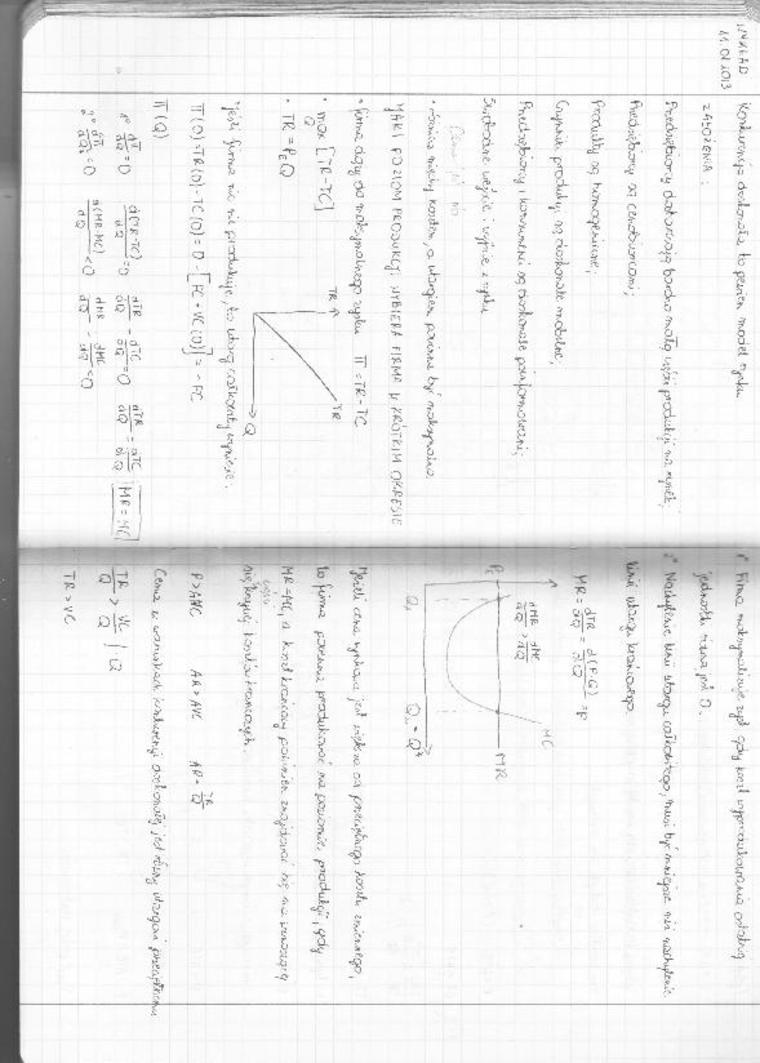 WYKŁAD
11.01.2013
Konkurencja doskonała to pewien model rynku
ZAŁOŻENIA:
Przedsiębiorcy dostarczają bardzo małą część produkcji na rynek;
Przedsiębiorcy są cenobiorcami;
Produkty są homogeniczne;
Czynniki produkcji są doskonale mobilne;
Przedsiębiorcy i konsumenci są doskonale poinformowani;
Swobodne wejście i wyjście z rynku
• różnica między kosztem, a utargiem powinna być maksymalna
JAKI POZIOM PRODUKCJI WYBIERA FIRMA W KRÓTKIM OKRESIE
• firma dąży do maksymalnego zysku Π = TR - TC
• max [TR-TC]
Q
• TR = P_E Q
TR
TR
Q
*jeśli firma nic nie produkuje, to utarg całkowity wyniesie:
Π(0) = TR(0) - TC(0) = 0 - [FC + VC(0)] = - FC
Π(Q)
1° dΠ/dQ = 0 d(TR-TC)/dQ = 0 dTR/dQ - dTC/dQ = 0 dTR/dQ = dTC/dQ MR = MC
d(MR-MC)/dQ < 0 dMR/dQ - dMC/dQ
1° Firma maksymalizuje zysk gdy koszt wyprodukowania ostatniej
jednostki
2° Nachylenie linii utargu całkowitego, musi być mniejsze niż nachylenie
linii utargu krańcowego.
MR = dTR/dQ = d(P·Q)/dQ = P
P_E
MR
MC
dMR/dQ > dMC/dQ
Q₁
Q₂ = Q*
Jeżeli cena rynkowa jest większa od przeciętnego kosztu zmiennego,
to firma powinna produkować na poziomie produkcji, gdy
MR=MC, a koszt krańcowy powinien znajdować się na wznoszącej
się krzywej kosztów krańcowych.
P > AVC AR > AVC AR = TR/Q
Cena w warunkach konkurencji doskonałej jest równy utargowi przeciętnemu
TR/Q > VC/Q / Q
TR > VC